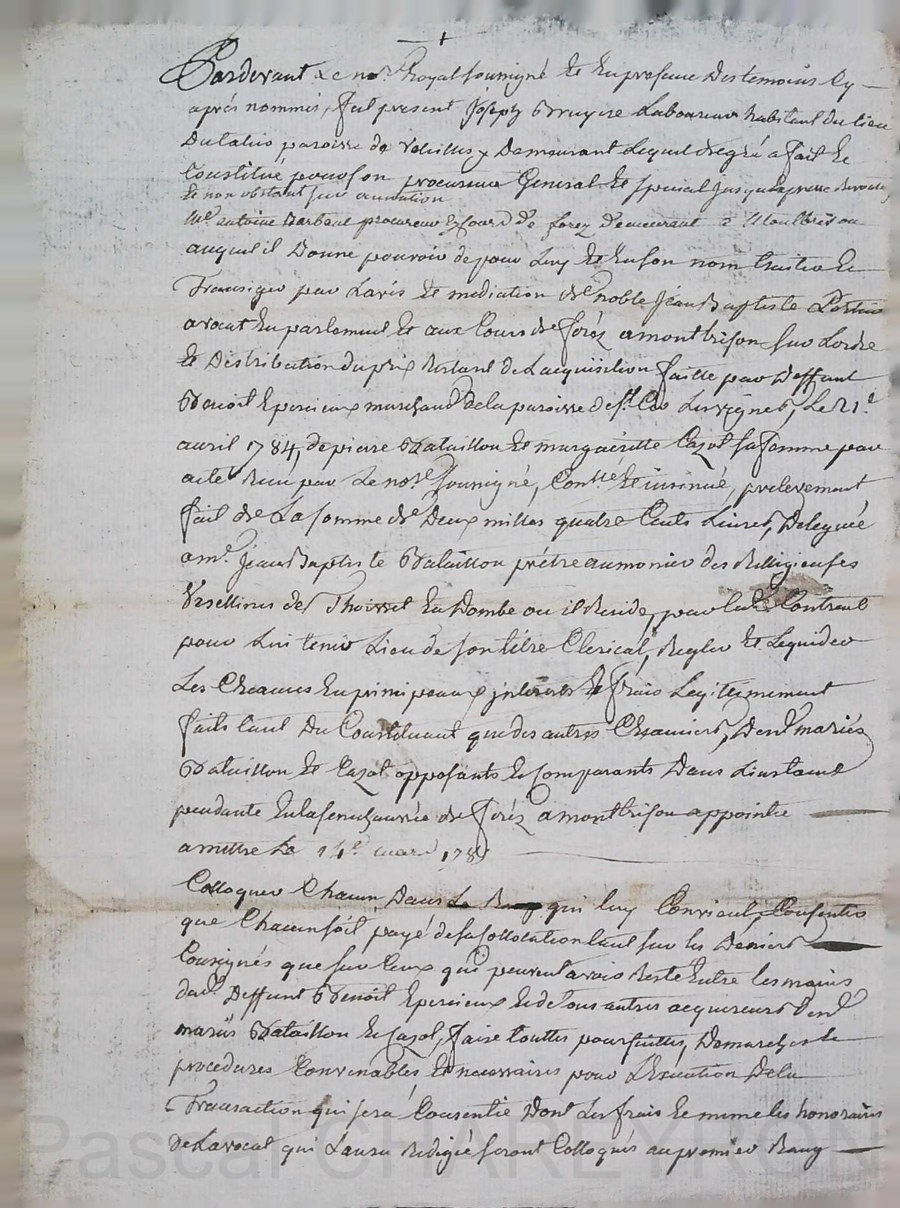 Pardevant Le nore Royal soussigné et En presence Des temoins Cy
aprés nommés, fut present Joseph Bruyere Laboureur habitant du lieu
paroisse de y Demeurant Lequel degré a fait et
Constitué pour son procureur General et special
et non obstant surannation
Me antoine Barban procureur Es cours de forez demeurant a Montbrison
auquel il Donne pouvoir de pour Luy et En son nom traiter et
Transiger par Lavis et mediation de noble Jean Baptiste
avocat En parlement et aux Cours de foréz a montbrison sur Lordre
et Distribution du prix Restant de Lacquisition faitte par Deffunt
Benoit Epercieux marchand de la paroisse de st Les vignes, Le 21e
avril 1784, de pierre Bataillon et margueritte Cazot sa femme par
acte Recu par Le nore soussigné, Conlle et insinué, prelevement
fait de La somme de Deux milles quatre Cents Livres, Deleguée
a me Jean Baptiste Bataillon prétre aumonier des Relligieuses
Ursellines de Thoissel En Dombe ou il Reside, par ledt Contract
pour Lui tenir Lieu de son titre Clerical, Regler et Lequider
Les Creances En principaux interets et frais Legitimement
faits tant Du Constituant que des autres Creanciers, Desdt mariés
Bataillon et Cazot opposants et Comparants Dans Linstance
pendante En la senechaussée de foréz a montbrison appointée
a mettre Le 14e mars 178
Colloquer Chacun Dans Le Rang qui luy Convient, Consentir
que Chacun soit payé de sa Collocation tant sur les Deniers
Consignés que sur Ceux qui peuvent avoir Resté Entre les mains
dudt Deffunt Benoit Epercieux et de tous autres acquereurs Desdt
mariés Bataillon et Cazot, faire touttes poursuittes, Demarches et
procedures Convenables et necessaires pour Lexecution De la
Transaction qui sera Consentie Dont Les frais et meme les honoraires
de Lavocat qui Laura Redigée seront Colloqués au premier Rang
Pascal CHAREYRON